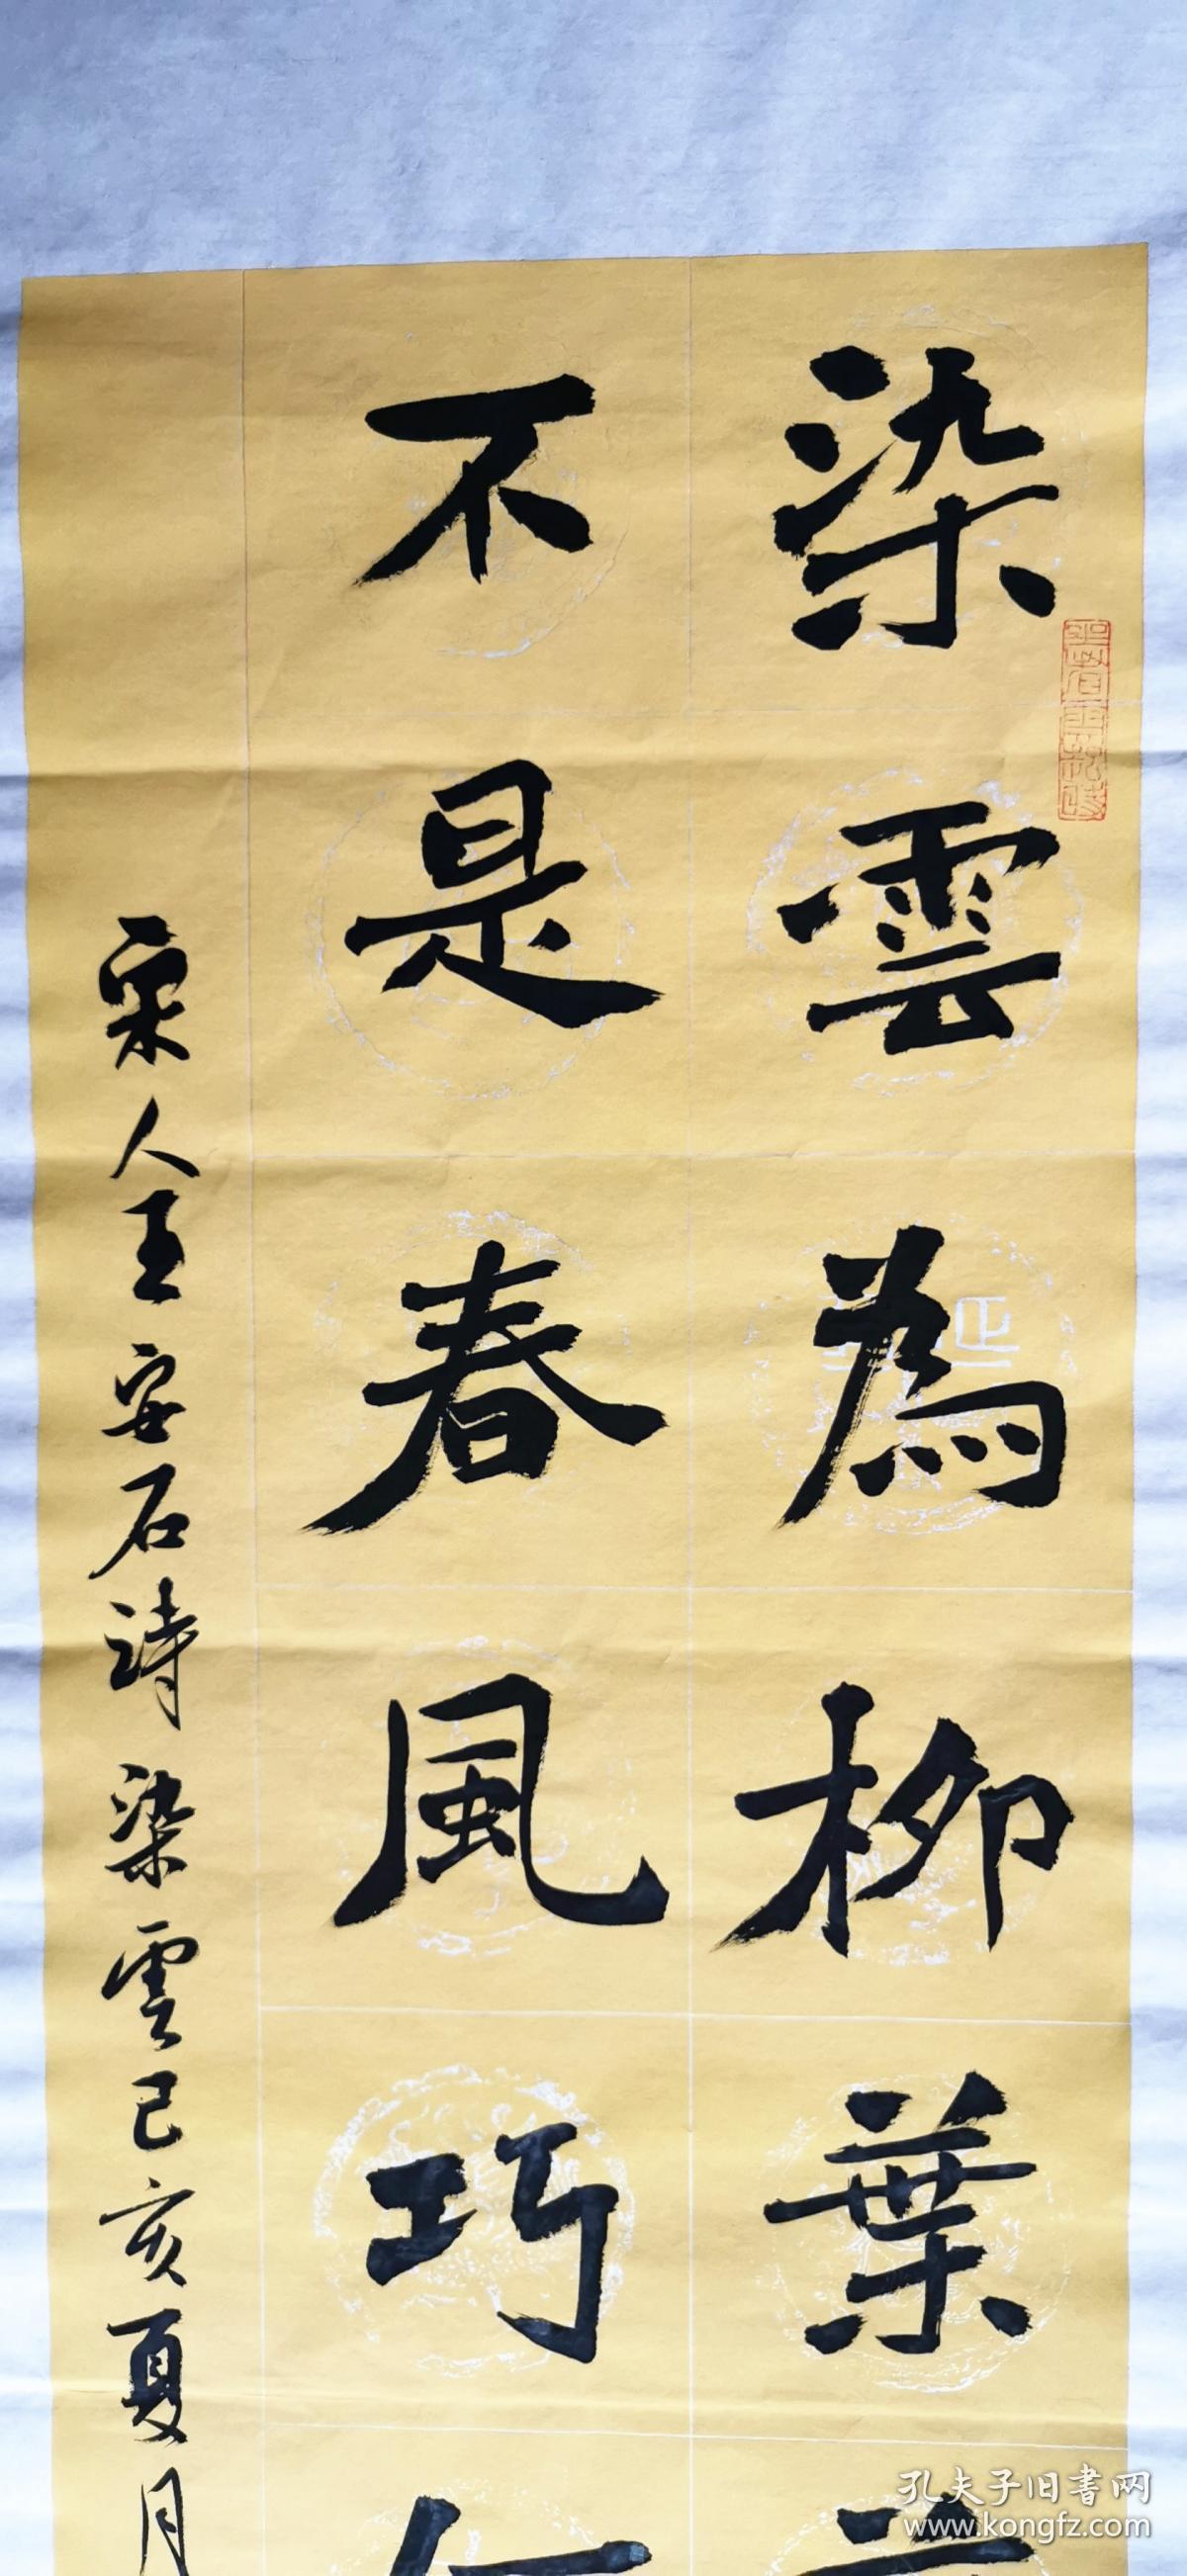 染雲為柳葉
不是春風巧
宋人王安石詩染雲己亥夏月
孔夫子旧書网
www.kongfz.com